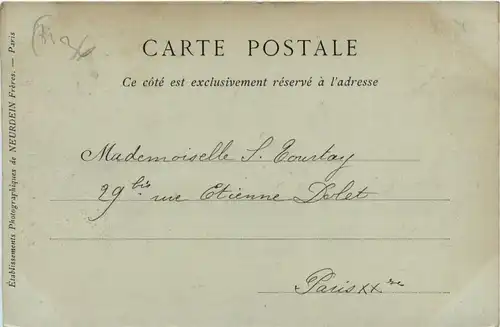 CARTE POSTALE
Ce côté est exclusivement réservé à l'adresse
Mademoiselle S. Tourtay
29 bis rue Etienne Dolet
Paris XX me
Établissements Photographiques de NEURDEIN Frères. — Paris